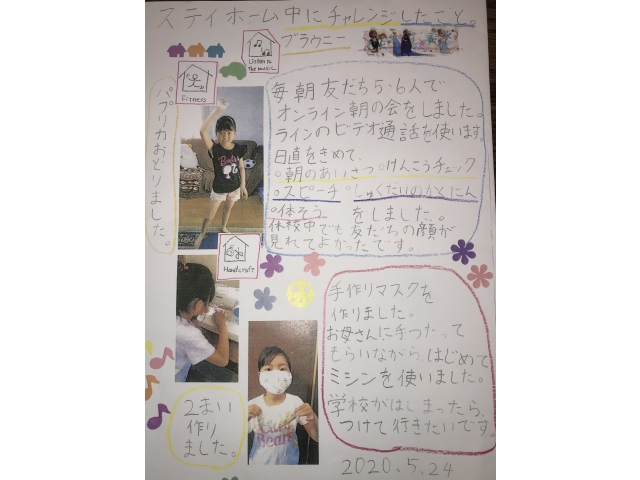 ステイホーム中にチャレンジしたこと。
ブラウニー
Listen to
The music
Fitness
パプリカおどりました。
毎朝友だち5、6人で
オンライン朝の会をしました。
ラインのビデオ通話を使います。
日直をきめて、
○朝のあいさつ ○けんこうチェック
○スピーチ ○しゅくだいのかくにん
○体そう をしました。
休校中でも友だちの顔が
見れてよかったです。
Handcraft
手作りマスクを
作りました。
お母さんに手つだって
もらいながら、はじめて
ミシンを使いました。
学校がはじまったら、
つけて行きたいです。
2まい
作り
ました。
2020.5.24